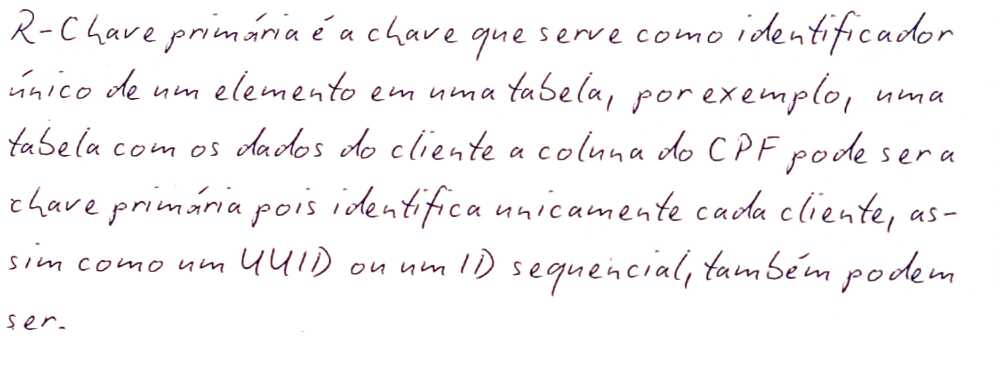 R-Chave primária é a chave que serve como identificador
único de um elemento em uma tabela, por exemplo, uma
tabela com os dados do cliente a coluna do CPF pode ser a
chave primária pois identifica unicamente cada cliente, as-
sim como um UUID ou um ID sequencial, também podem
ser.